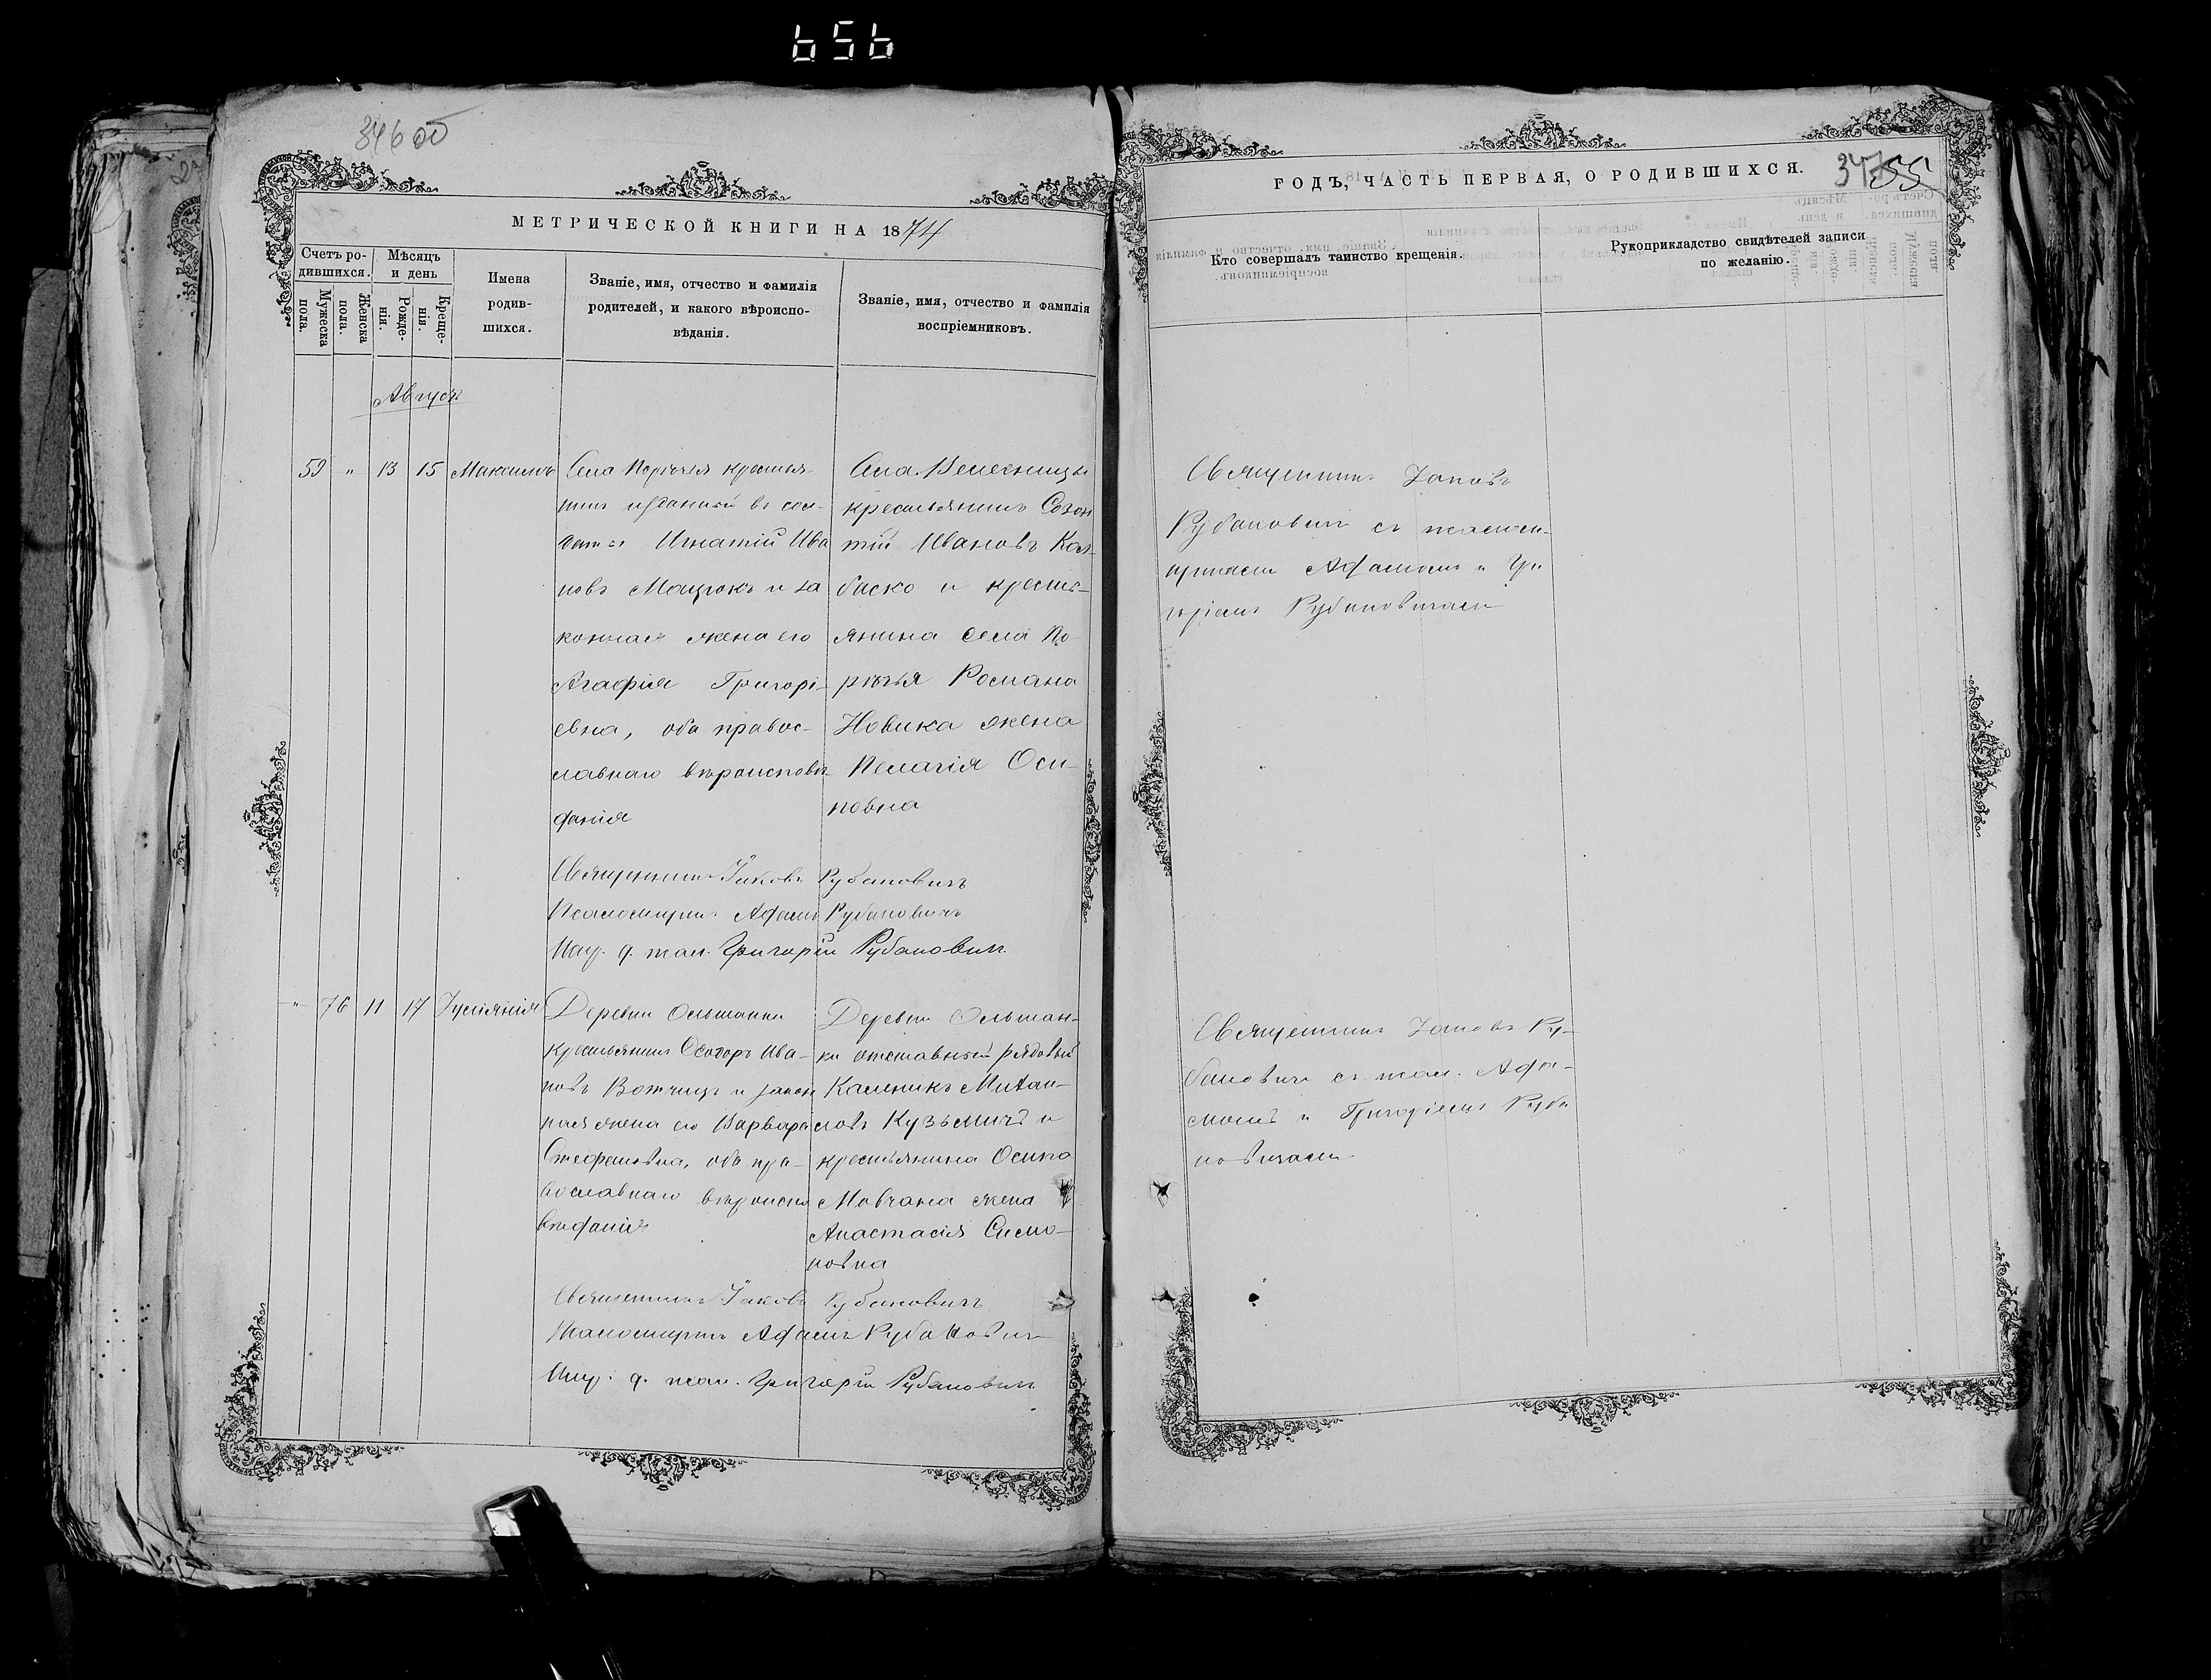 656
34600
МЕТРИЧЕСКОЙ КНИГИ НА 1874
Счетъ ро-
дившихся.
Мужеска пола.
Женска пола.
Мѣсяцъ
и день
Рожде-
нія.
Креще-
нія.
Имена
родив-
шихся.
Званіе, имя, отчество и фамилія
родителей, и какого вѣроиспо-
вѣданія.
Званіе, имя, отчество и фамилія
воспріемниковъ.
Августъ
59 " 13 15 Максимъ
Села Порѣчья крестья-
нинъ отданный въ сол-
даты Игнатій Ива
новъ Мацукъ и за
конная жена его
Агафія Григорі-
евна, оба правос-
лавнаго вѣроисповѣ-
данія
Села Велесницы
крестьянинъ Созон
тій Ивановъ Кол-
баско и кресть-
янина села По-
рѣчья Романа
Новика жена
Пелагія Оси-
повна
Священникъ Іаковъ Рубановичъ
Псаломщикъ Адамъ Рубановичъ
Исп. д. псал. Григорій Рубановичъ
" 76 11 17 Іуліанія
Деревни Ольшанки
крестьянинъ Ѳеодоръ Ива-
новъ Вотчицъ и закон
ная жена его Варвара
Стефановна, оба пра-
вославнаго вѣроиспо
вѣданія
Деревни Ольшан-
ки отставный рядовый
Калиникъ Михаи-
ловъ Кузьмичъ и
крестьянина Осипа
Мовчана жена
Анастасія Симо-
новна
Священникъ Іаковъ Рубановичъ
Псаломщикъ Адамъ Рубановичъ
Исп. д. псал. Григорій Рубановичъ
ГОДЪ, ЧАСТЬ ПЕРВАЯ, О РОДИВШИХСЯ.
Кто совершалъ таинство крещенія.
Рукоприкладство свидѣтелей записи
по желанію.
Священникъ Іаковъ
Рубановичъ съ псалом-
щиками Адамомъ и Гри
горіемъ Рубановичами
Священникъ Іаковъ Ру-
бановичъ съ псал. Ада-
момъ и Григоріемъ Руба
новичами